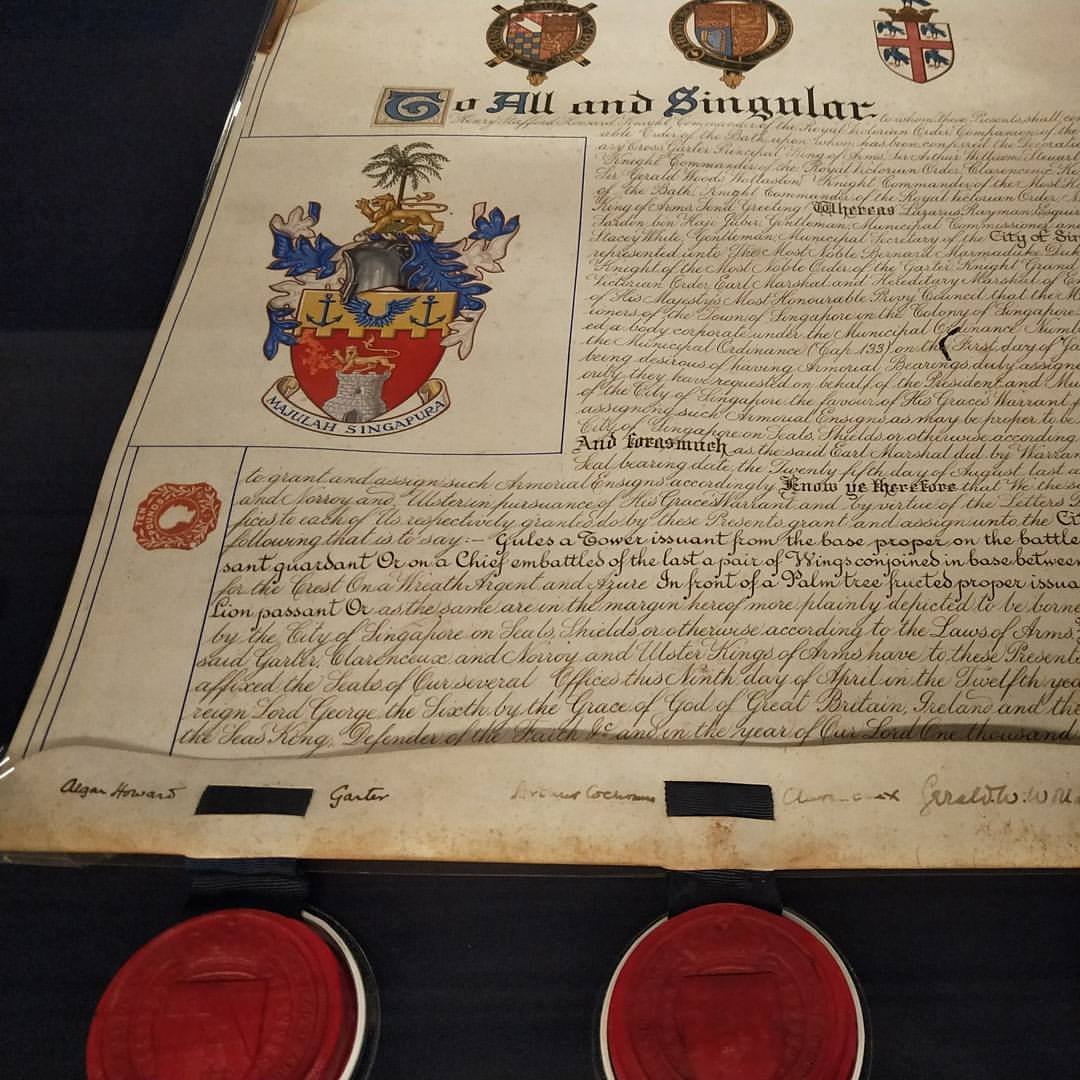 To All and Singular
to whom these Presents shall
Henry Knight Commander of the Royal Victorian Order, Companion of the
able Order of the Bath, upon whom has been conferred the
Garter Principal King of Arms, Sir Arthur William Steuart
Knight Commander of the Royal Victorian Order, Clarenceux
Sir Gerald Woods Wollaston Knight Commander of the Most
of the Bath, Knight Commander of the Royal Victorian Order,
King of Arms Send Greeting Whereas Lazarus Rayman,
Sardon bin Haji Jubir, Gentleman, Municipal Commissioner and
Stacey White, Gentleman, Municipal Secretary of the City of
represented unto The Most Noble Bernard Marmaduke
Knight of the Most Noble Order of the Garter Knight Grand
Victorian Order, Earl Marshal and Hereditary Marshal of
of His Majesty's Most Honourable Privy Council that the
ioners of the Town of Singapore in the Colony of Singapore
ed a body corporate under the Municipal Ordinance
the Municipal Ordinance (Cap. 133) on the First day of
being desirous of having Armorial Bearings duly
ority they have requested on behalf of the President and
of the City of Singapore the favour of His Grace's Warrant
assigning such Armorial Ensigns as may be proper to be
City of Singapore on Seals, Shields or otherwise according
And forasmuch as the said Earl Marshal did by
Seal bearing date the Twenty fifth day of August last
MAJULAH SINGAPURA
to grant and assign such Armorial Ensigns accordingly Know ye therefore that We the
TEN POUNDS
and Norroy and Ulster in pursuance of His Grace's Warrant and by virtue of the Letters
fices to each of Us respectively granted do by these Presents grant and assign unto the
following that is to say:— Gules a Tower issuant from the base proper, on the
sant guardant Or on a Chief embattled of the last a pair of Wings conjoined in base between
for the Crest On a Wreath Argent and Azure In front of a Palm tree fructed proper
Lion passant Or as the same are in the margin hereof more plainly depicted to be borne
by the City of Singapore on Seals, Shields or otherwise according to the Laws of Arms
said Garter, Clarenceux and Norroy and Ulster Kings of Arms have to these
affixed the Seals of Our several Offices this Ninth day of April in the Twelfth
reign Lord George the Sixth by the Grace of God of Great Britain, Ireland and
the Seas King, Defender of the Faith &c and in the year of Our Lord One thousand
Algar Howard Garter Arthur Cochrane Clarenceux Gerald W.